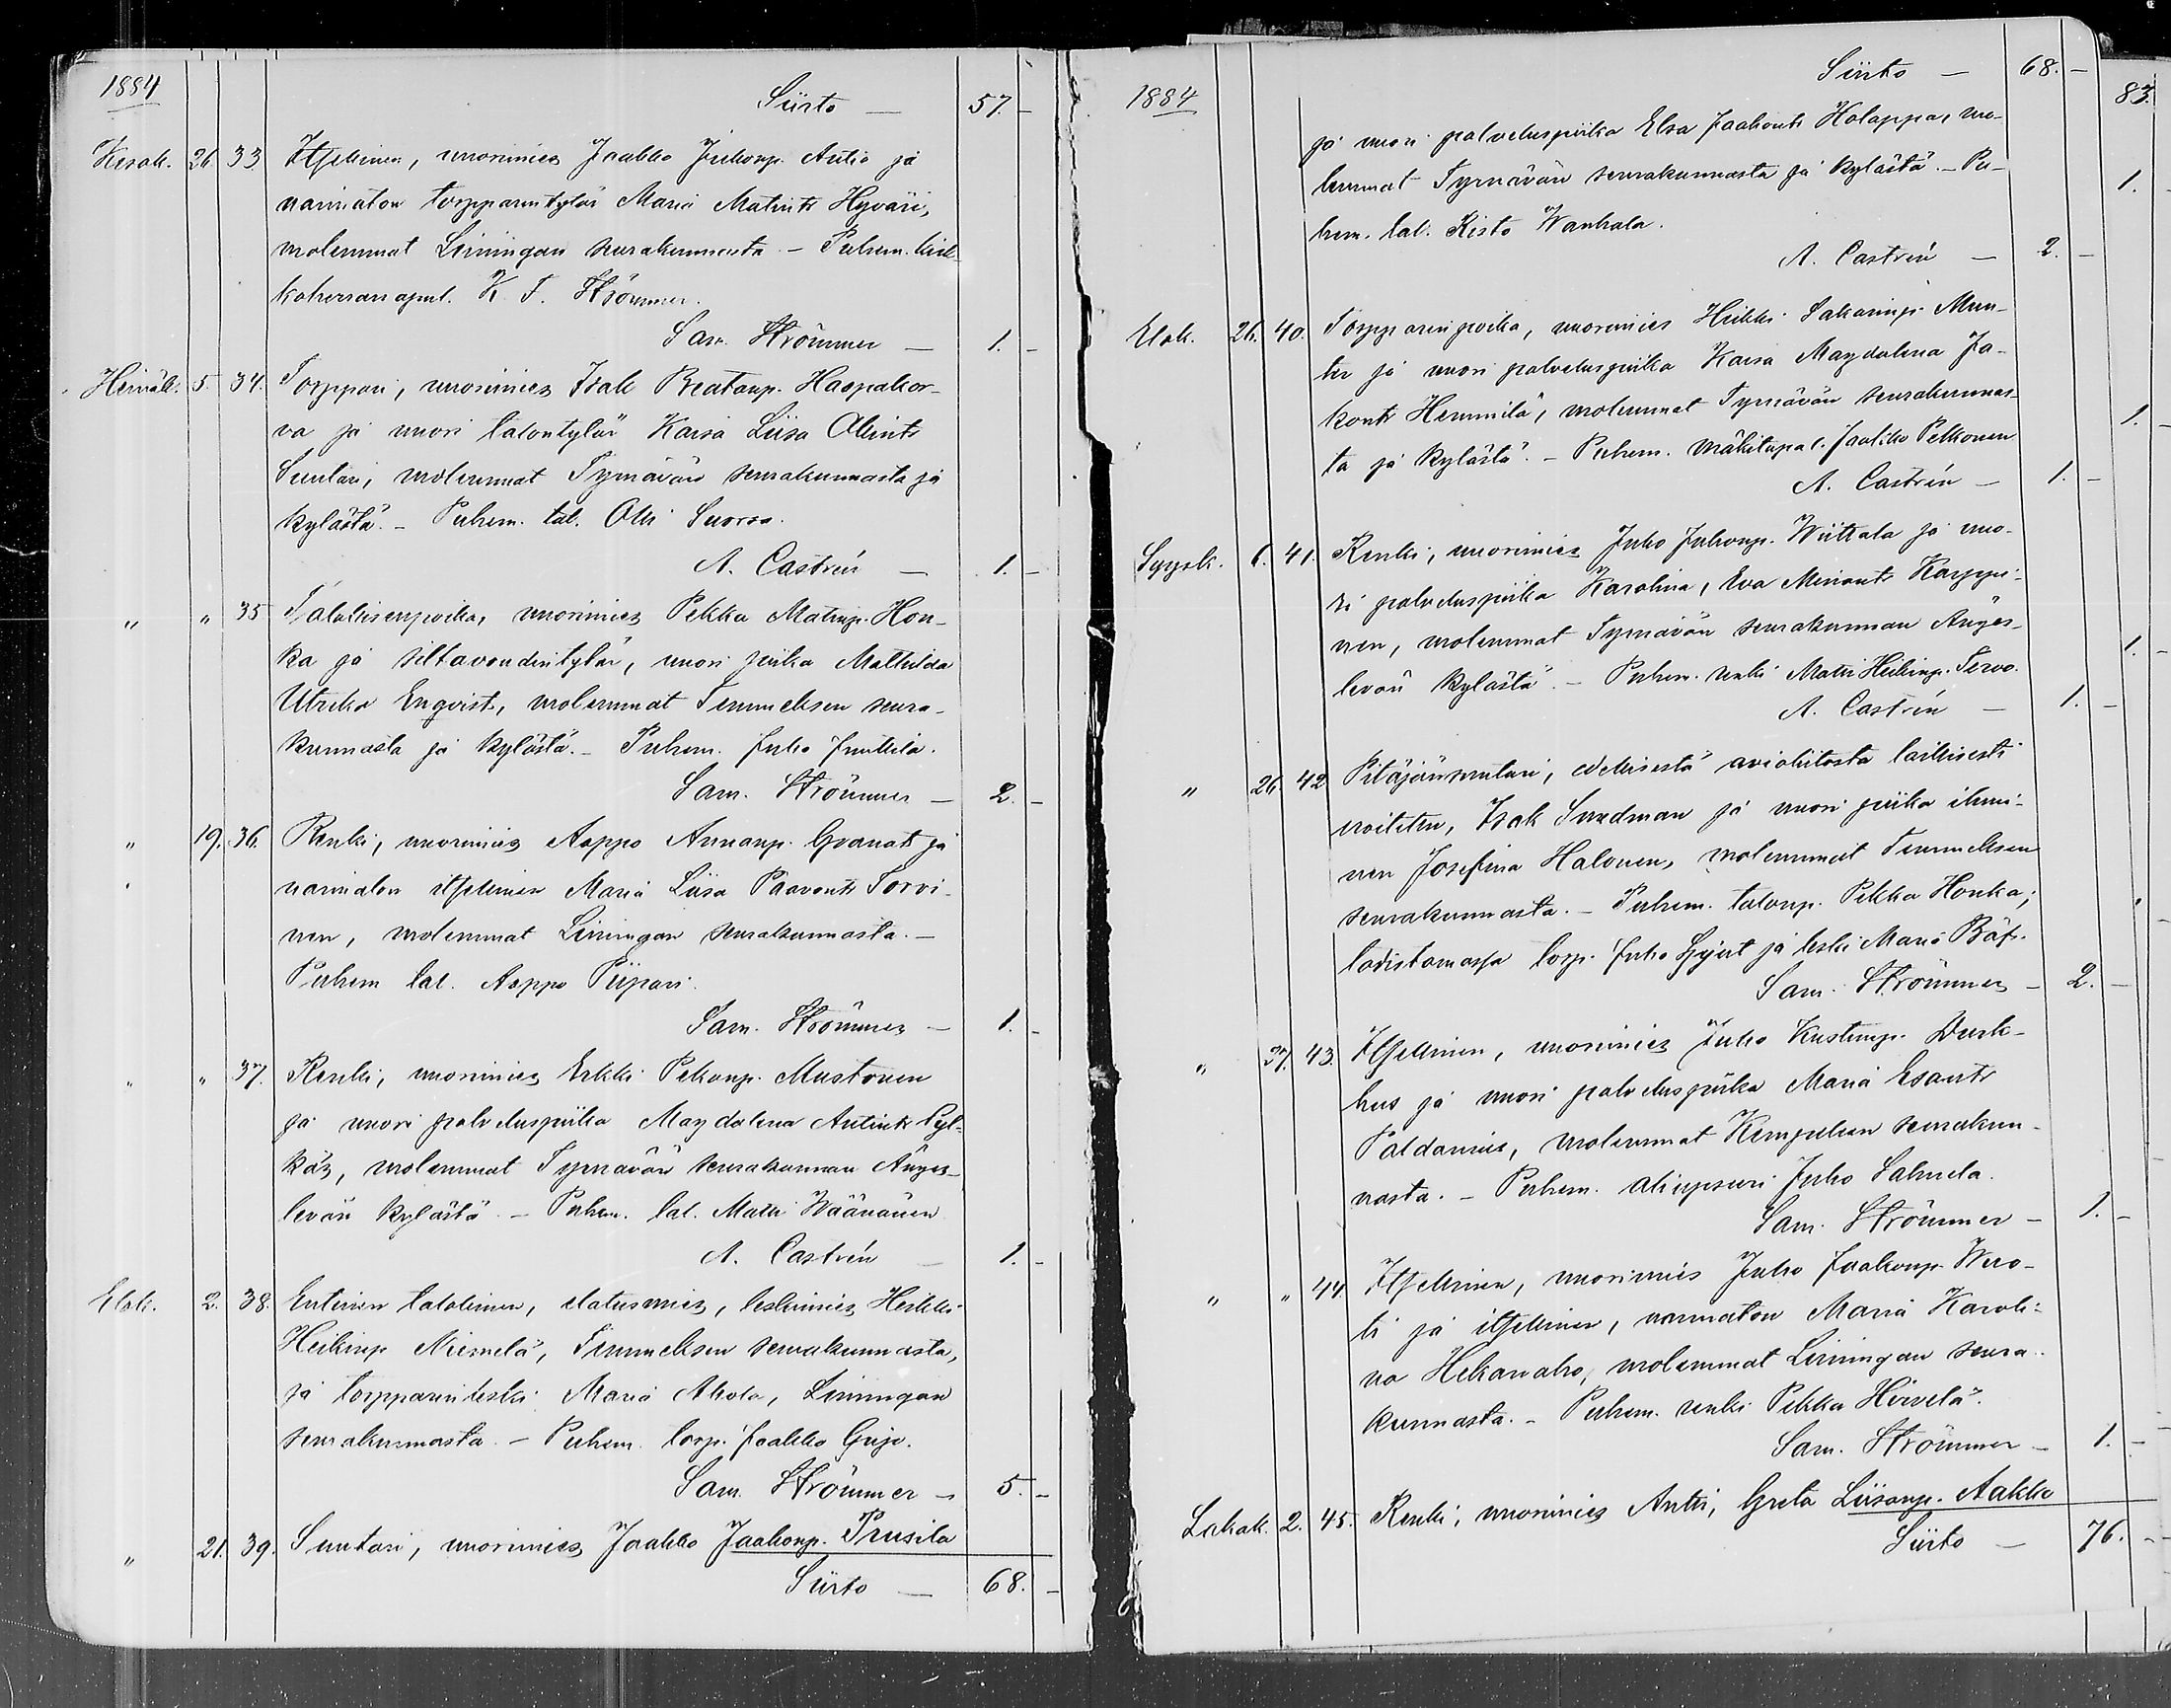 1884
Siirto — 57. —
Kesäk. 26. 33. Itsellinen, nuorimies Jaakko Juhonp. Autio ja
naimaton torpparintytär Maria Matints Hyväri,
molemmat Limingan seurakunnasta. — Puhem. kirk-
koherranapul. K. F. Strömmer.
Sam. Strömmer — 1. —
Heinäk. 5. 34. Torppari, nuorimies Isak Beatanp. Haapakor-
va ja nuori talontytär Kaisa Liisa Ollints
Suutari, molemmat Tyrnävän seurakunnasta ja
kylästä. — Puhem. tal. Olli Suorsa.
A. Castrén — 1. —
" " 35 Talollisenpoika, nuorimies Pekka Matinp. Hon-
ka ja siltavoudintytär, nuori piika Mathilda
Ulrika Enqvist, molemmat Temmeksen seura-
kunnasta ja kylästä. — Puhem. Juho Junttila.
Sam. Strömmer — 2. —
" 19. 36. Renki, nuorimies Aappo Annanp. Granat ja
naimaton itsellinen Maria Liisa Paavonts Torvi-
nen, molemmat Limingan seurakunnasta. —
Puhem tal. Aappo Piipari.
Sam. Strömmer — 1. —
" " 37. Renki, nuorimies Erkki Pekanp. Mustonen
ja nuori palveluspiika Magdalena Antints Pyl-
käs, molemmat Tyrnävän seurakunnan Ånges-
levän kylästä. — Puhem. tal. Matti Wäänänen
A. Castrén — 1. —
Elok. 2. 38. Entinen talollinen, elatusmies, leskimies Heikki
Heikinp Niemelä, Temmeksen seurakunnasta,
ja torpparinleski Maria Ahola, Limingan
seurakunnasta. — Puhem. torp. Jaakko Grijo.
Sam. Strömmer — 5. —
" 21. 39. Suutari, nuorimies Jaakko Jaakonp. Prusila
Siirto — 68. —
1884
Siirto — 68. —
83.
ja nuori palveluspiika Elsa Jaakonts Holappa, mo-
lemmat Tyrnävän seurakunnasta ja kylästä. — Pu-
hem. tal. Risto Wanhala.
1.
A. Castrén — 2. —
Elok. 26. 40. Torpparinpoika, nuorimies Heikki Sakarinp. Mun-
ter ja nuori palveluspiika Kaisa Magdalena Ja-
konts Hemmilä, molemmat Tyrnävän seurakunnas-
ta ja kylästä. — Puhem. mäkitupal. Jaakko Pelkonen
1. —
A. Castrén — 1. —
Syysk. 6. 41. Renki, nuorimies Juho Juhonp. Wiittala ja nuo-
ri palveluspiika Karolina, Eva Minants Karppi-
nen, molemmat Tyrnävän seurakunnan Ånges-
levän kylästä. — Puhem. renki Matti Heikinp. Tervo.
1. —
A. Castrén — 1. —
" 26. 42 Pitäjänsuutari, edellisestä avioliitosta laillisesti
eroitettu, Isak Sundman ja nuori piika ihmi-
nen Josefina Halonen, molemmat Temmeksen
seurakunnasta. — Puhem. talonp. Pekka Honka;
todistamassa torp. Juho Gyut ja leski Maria Bäf.
Sam. Strömmer — 2. —
" 27. 43. Itsellinen, nuorimies Juho Kustinp. Dusk-
hus ja nuori palveluspiika Maria Esants
Paldanius, molemmat Kempeleen seurakun-
nasta. — Puhem. aliupseeri Juho Lahnela.
Sam. Strömmer — 1. —
" " 44. Itsellinen, nuorimies Juho Jaakonp. Wuo-
ti ja itsellinen, naimaton Maria Karoli-
na Hekanaho, molemmat Limingan seura-
kunnasta. — Puhem. renki Pekka Hirvelä.
Sam. Strömmer — 1. —
Lokak. 2. 45. Renki, nuorimies Antti, Greta Liisanp. Aakko
Siirto — 76. —